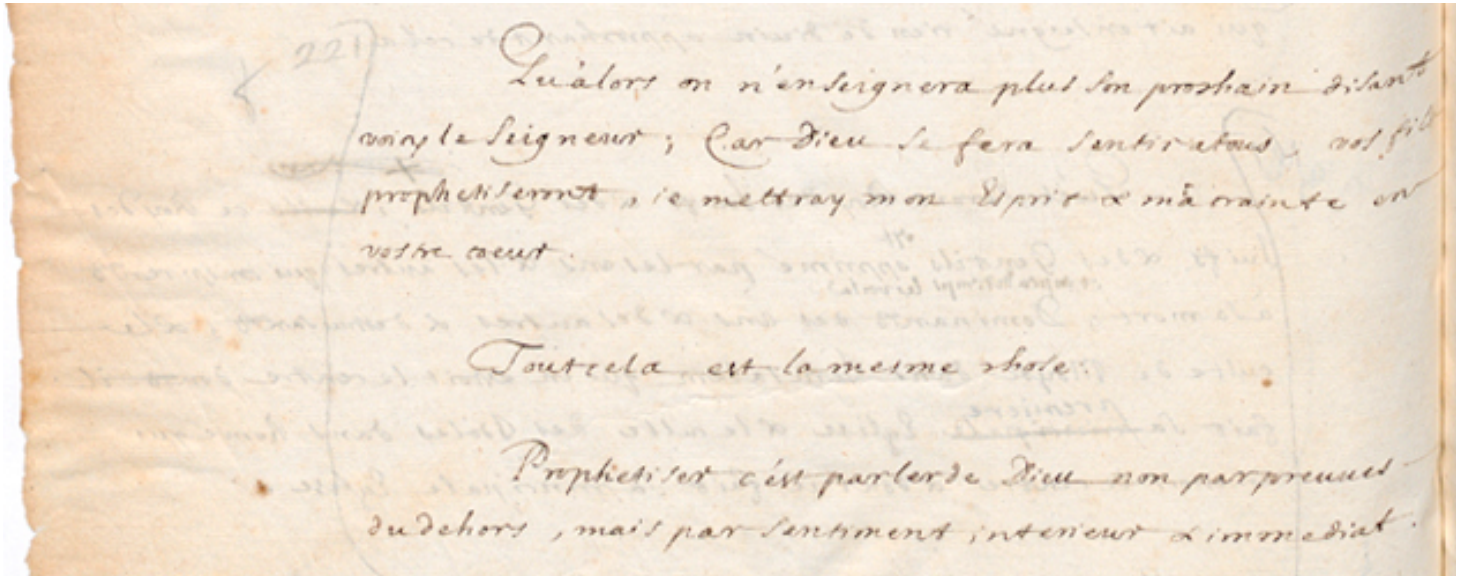 221
Qu'alors on n'enseignera plus son prochain disant
voicy le Seigneur; Car Dieu se fera sentir atous, vos fils
prophetiseront, ie mettray mon Esprit & ma crainte en
vostre coeur.
Tout cela est la mesme chose.
Prophetiser c'est parler de Dieu non par preuves
du dehors, mais par sentiment interieur & immediat.